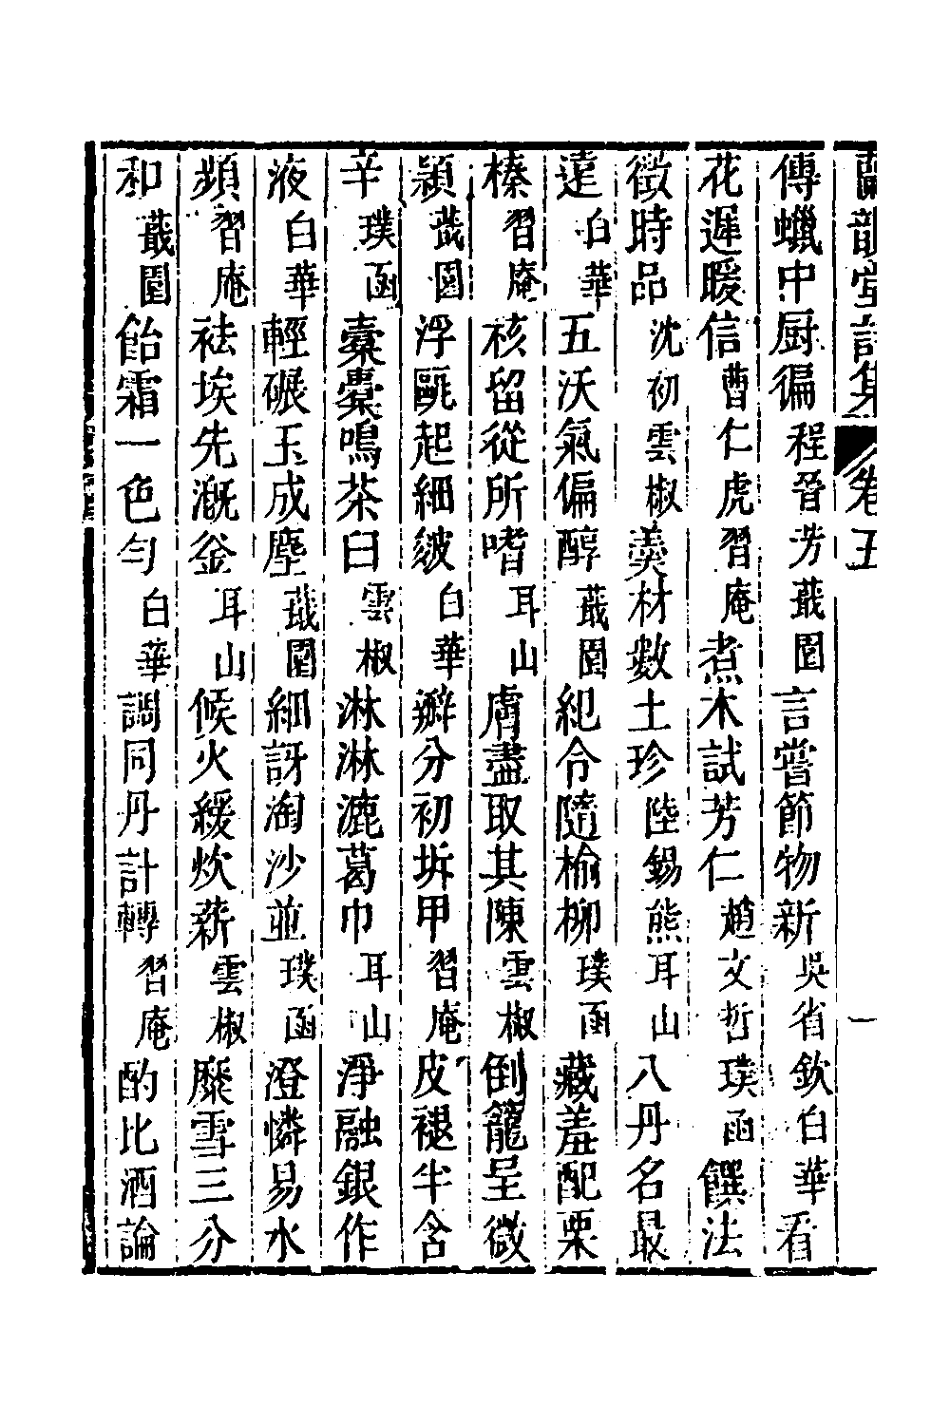 蘭韻堂詩集 卷五 一
傳蠟中厨徧程晉芳蕺園言嘗節物新吳省欽白華看
花遲暖信曹仁虎習庵煮木試芳仁趙文哲璞函饌法
徵時品沈初雲椒羮材數土珍陸錫熊耳山八丹名最
遠白華五沃氣偏醇蕺園紀令隨榆柳璞函藏羞配栗
榛習庵核留從所嗜耳山膚盡取其陳雲椒倒籠呈微
潁蕺園浮甌起細皴白華瓣分初坼甲習庵皮褪半含
辛璞函橐橐鳴茶臼雲椒淋淋漉葛巾耳山淨融銀作
液白華輕碾玉成塵蕺園細訝淘沙並璞函澄憐易水
蘋習庵袪埃先溉釡耳山候火緩炊薪雲椒糜雪三分
和蕺園飴霜一色勻白華調同丹計轉習庵酌比酒論